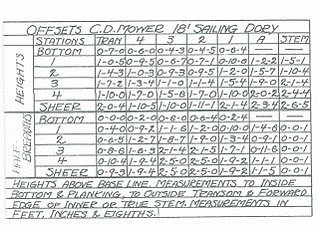 OFFSETS C.D. MOWER 18' SAILING DORY
STATIONS TRAN 4 3 2 1 A STEM
HEIGHTS
BOTTOM 0-7-0 0-6-0 0-4-3 0-4-5 0-6-4 — —
1 1-0-5 0-9-5 0-6-7 0-7-1 0-10-6 1-2-2 1-5-1
2 1-4-3 1-0-3 0-9-3 0-9-5 1-2-0 1-5-7 1-10-4
3 1-7-2 1-3-4 1-1-1 1-4 1-5-4 1-9-0 2-1-4
4 1-10-0 1-7-0 1-5-6 1-7-0 1-10-2 2-0-2 2-4-4
SHEER 2-0-4 1-10-5 1-10-0 1-11-1 2-1-4 2-3-4 2-6-5
HALF BREADTHS
BOTTOM 0-0-0 0-2-0 0-6-0 0-6-4 0-2-4 — —
1 0-4-0 0-9-2 1-1-6 1-2-0 0-10-0 1-4-6 0-0-1
2 0-6-5 1-2-7 1-8-2 1-9-0 1-3-4 0-9-1 0-0-1
3 0-8-6 1-6-3 2-1-4 2-1-5 1-7-1 0-11-6 0-0-1
4 0-10-4 1-9-4 2-5-0 2-5-0 1-9-2 1-1-1 0-0-1
SHEER 0-9-3 1-9-4 2-5-0 2-5-0 1-9-2 1-1-5 0-0-1
HEIGHTS ABOVE BASE LINE. MEASUREMENTS TO INSIDE
BOTTOM & PLANKING, TO OUTSIDE TRANSOM & FORWARD
EDGE OF INNER OR TRUE STEM. MEASUREMENTS IN
FEET, INCHES & EIGHTHS.